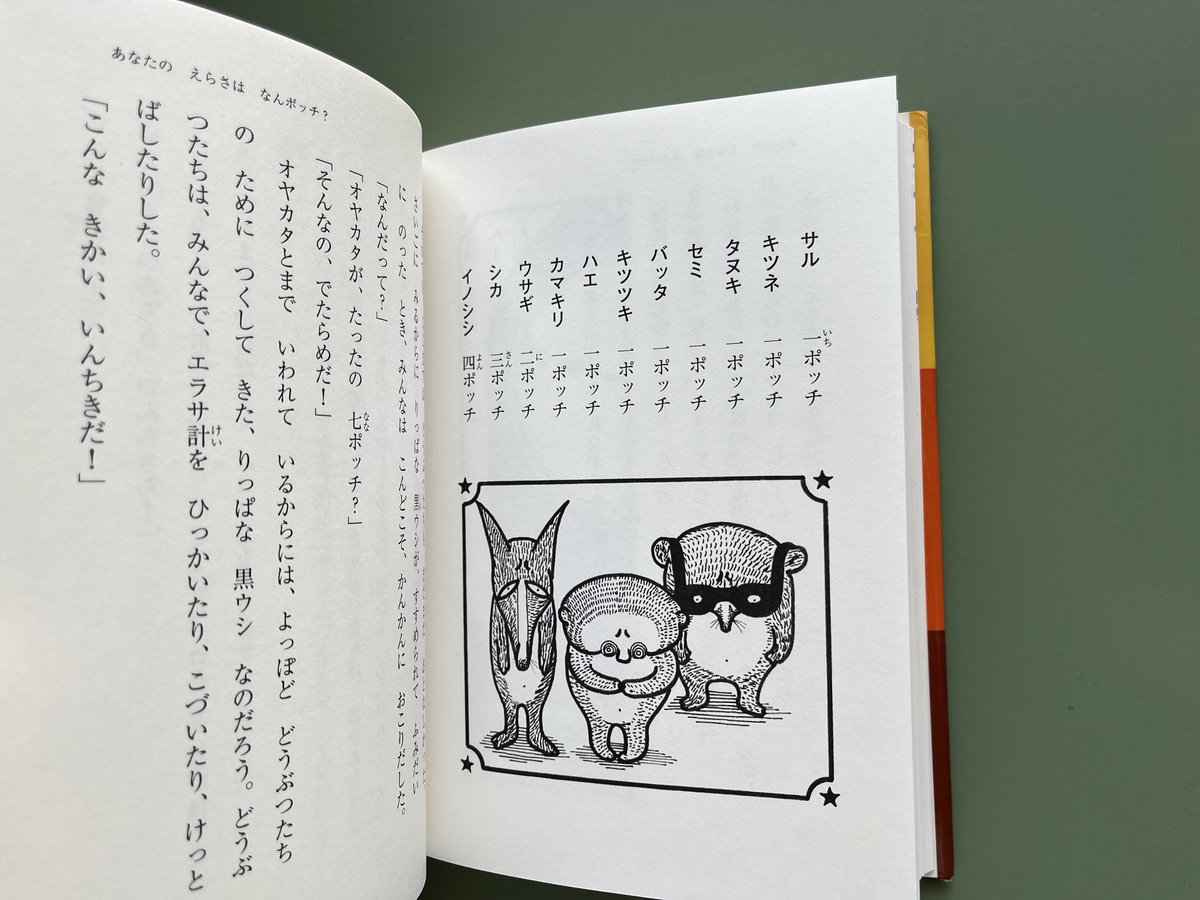 サル 一ポッチ
いち
キツネ 一ポッチ
タヌキ 一ポッチ
セミ 一ポッチ
バッタ 一ポッチ
キツツキ 一ポッチ
ハエ 一ポッチ
カマキリ 一ポッチ
ウサギ 二ポッチ
に
シカ 三ポッチ
さん
イノシシ 四ポッチ
よん
あなたの えらさは なんポッチ?
さいごに みるからに りっぱな 黒ウシが、すすめられて ふみだい
に のった とき、みんなは こんどこそ、かんかんに おこりだした。
「なんだって?」
「オヤカタが、たったの 七ポッチ?」
なな
「そんなの、でたらめだ!」
オヤカタとまで いわれて いるからには、よっぽど どうぶつたち
の ために つくして きた、りっぱな 黒ウシ なのだろう。どうぶ
つたちは、みんなで、エラサ計を ひっかいたり、こづいたり、けっと
けい
ばしたりした。
「こんな きかい、いんちきだ!」